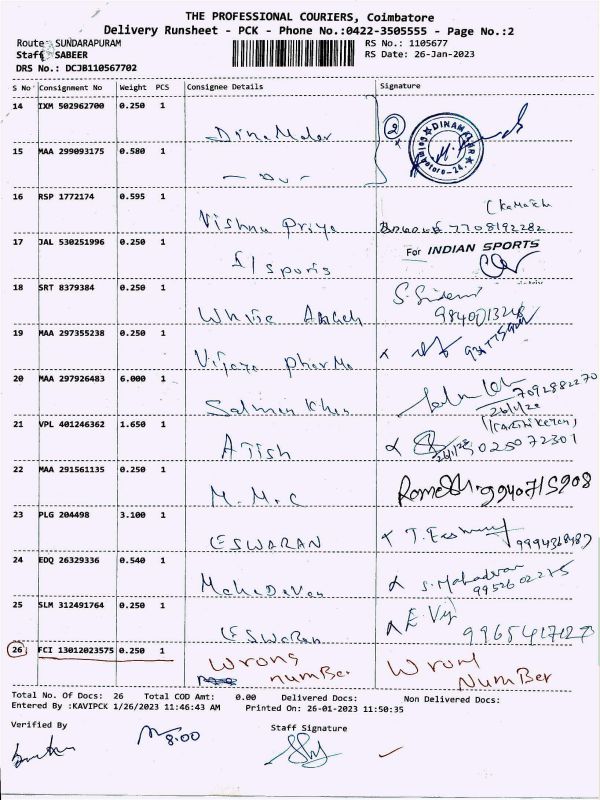 THE PROFESSIONAL COURIERS, Coimbatore
Delivery Runsheet - PCK - Phone No.:0422-3505555 - Page No.:2
Route: SUNDARAPURAM RS No.: 1105677
Staff: SABEER RS Date: 26-Jan-2023
DRS No.: DCJB110567702
S No Consignment No Weight PCS Consignee Details Signature
14 IXM 502962700 0.250 1 Dinamalar 2 DINAMALAR
15 MAA 299093175 0.580 1 - Do -
16 RSP 1772174 0.595 1 Vishnu Priya 7708192282
17 JAL 530251996 0.250 1 I/Sports For INDIAN SPORTS
18 SRT 8379384 0.250 1 White
19 MAA 297355238 0.250 1 Vijaya Pharma
20 MAA 297926483 6.000 1 Salman Khan 7092882270
26/1/23
21 VPL 401246362 1.650 1 ATish
22 MAA 291561135 0.250 1 M.M.C 9940715908
23 PLG 204498 3.100 1 ESWARAN
24 EDQ 26329336 0.540 1 MahaDevan S. Mahadevan
9952602275
25 SLM 312491764 0.250 1 ESWaRan
26 FCI 13012023575 0.250 1 Wrong number Wrong NumBer
Total No. Of Docs: 26 Total COD Amt: 0.00 Delivered Docs: Non Delivered Docs:
Entered By :KAVIPCK 1/26/2023 11:46:43 AM Printed On: 26-01-2023 11:50:35
Verified By Staff Signature
8:00